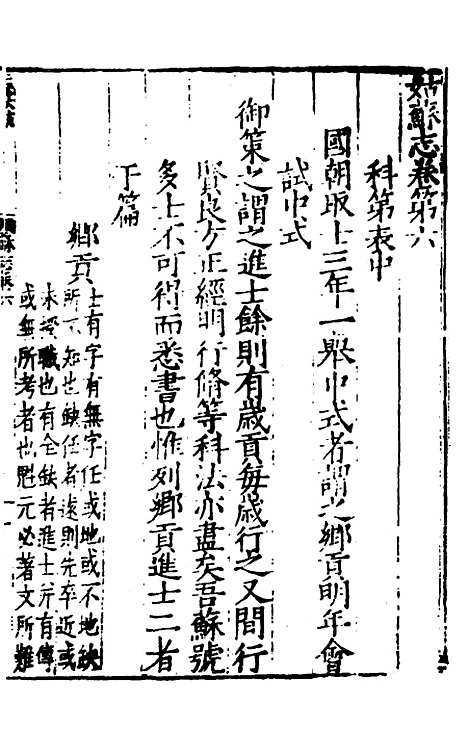 姑蘇志卷第六
科第表中
國朝取士三年一舉中式者謂之鄉貢明年會
試中式
御策之謂之進士餘則有歲貢每歲行之又間行
賢良方正經明行脩等科法亦盡矣吾蘇號
多士不可得而悉書也惟列鄉貢進士二者
于篇
鄉貢
士有字有無字任或地或不地缺
所不知也缺任者遠則先卒近或
未授職也有全缺者進士并有傳
或無所考者也魁元必著文所難